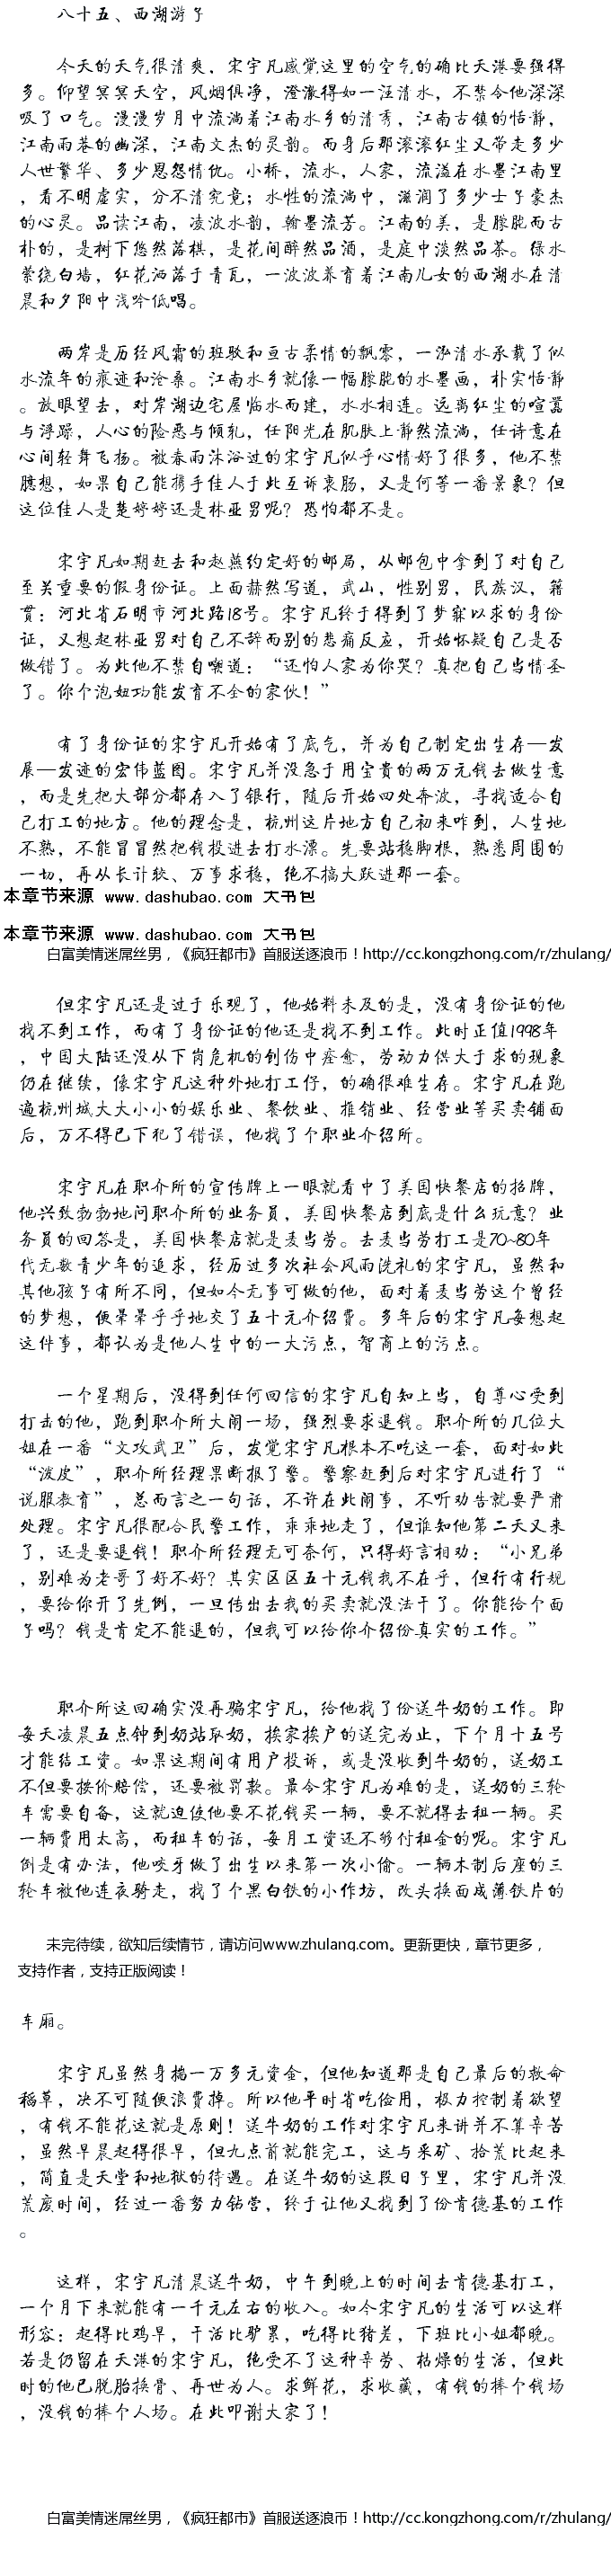 八十五、西湖游子
今天的天气很清爽，宋宇凡感觉这里的空气的确比天港要强得
多。仰望冥冥天空，风烟俱净，澄濠得如一汪清水，不禁令他深深
吸了口气。漫漫岁月中流淌着江南水乡的清秀，江南古镇的恬静，
江南雨巷的幽深，江南文杰的灵韵。而身后那滚滚红尘又带走多少
人世繁华、多少恩怨情仇。小桥，流水，人家，流溢在水墨江南里
，看不明虚实，分不清究竟；水性的流淌中，滋润了多少士子豪杰
的心灵。品读江南，凌波水韵，翰墨流芳。江南的美，是朦胧而古
朴的，是树下悠然落棋，是花间醉然品酒，是庭中淡然品茶。绿水
萦绕白墙，红花洒落于青瓦，一波波养育着江南儿女的西湖水在清
晨和夕阳中浅吟低唱。
两岸是历经风霜的斑驳和亘古柔情的飘零，一泓清水承载了似
水流年的痕迹和沧桑。江南水乡就像一幅朦胧的水墨画，朴实恬静
。放眼望去，对岸湖边宅屋临水而建，水水相连。远离红尘的喧嚣
与浮躁，人心的险恶与倾轧，任阳光在肌肤上静然流淌，任诗意在
心间轻舞飞扬。被春雨沐浴过的宋宇凡似乎心情好了很多，他不禁
臆想，如果自己能携手佳人于此互诉衷肠，又是何等一番景象？但
这位佳人是楚婷婷还是林亚男呢？恐怕都不是。
宋宇凡如期赶去和赵燕约定好的邮局，从邮包中拿到了对自己
至关重要的假身份证。上面赫然写道，武山，性别男，民族汉，籍
贯：河北省石明市河北路18号。宋宇凡终于得到了梦寐以求的身份
证，又想起林亚男对自己不辞而别的悲痛反应，开始怀疑自己是否
做错了。为此他不禁自嘲道：“还怕人家为你哭？真把自己当情圣
了。你个泡妞功能发育不全的家伙！”
有了身份证的宋宇凡开始有了底气，并为自己制定出生存—发
展—发迹的宏伟蓝图。宋宇凡并没急于用宝贵的两万元钱去做生意
，而是先把大部分都存入了银行，随后开始四处奔波，寻找适合自
己打工的地方。他的理念是，杭州这片地方自己初来咋到，人生地
不熟，不能冒冒然把钱投进去打水漂。先要站稳脚根，熟悉周围的
一切，再从长计较、万事求稳，绝不搞大跃进那一套。
本章节来源 www.dashubao.com 大书包
本章节来源 www.dashubao.com 大书包
白富美情迷屌丝男，《疯狂都市》首服送逐浪币！http://cc.kongzhong.com/r/zhulang/
但宋宇凡还是过于乐观了，他始料未及的是，没有身份证的他
找不到工作，而有了身份证的他还是找不到工作。此时正值1998年
，中国大陆还没从下岗危机的创伤中痊愈，劳动力供大于求的现象
仍在继续，像宋宇凡这种外地打工仔，的确很难生存。宋宇凡在跑
遍杭州城大大小小的娱乐业、餐饮业、推销业、经营业等买卖铺面
后，万不得已下犯了错误，他找了个职业介绍所。
宋宇凡在职介所的宣传牌上一眼就看中了美国快餐店的招牌，
他兴致勃勃地问职介所的业务员，美国快餐店到底是什么玩意？业
务员的回答是，美国快餐店就是麦当劳。去麦当劳打工是70~80年
代无数青少年的追求，经历过多次社会风雨洗礼的宋宇凡，虽然和
其他孩子有所不同，但如今无事可做的他，面对着麦当劳这个曾经
的梦想，便晕晕乎乎地交了五十元介绍费。多年后的宋宇凡每想起
这件事，都认为是他人生中的一大污点，智商上的污点。
一个星期后，没得到任何回信的宋宇凡自知上当，自尊心受到
打击的他，跑到职介所大闹一场，强烈要求退钱。职介所的几位大
姐在一番“文攻武卫”后，发觉宋宇凡根本不吃这一套，面对如此
“泼皮”，职介所经理果断报了警。警察赶到后对宋宇凡进行了“
说服教育”，总而言之一句话，不许在此闹事，不听劝告就要严肃
处理。宋宇凡很配合民警工作，乖乖地走了，但谁知他第二天又来
了，还是要退钱！职介所经理无可奈何，只得好言相劝：“小兄弟
，别难为老哥了好不好？其实区区五十元钱我不在乎，但行有行规
，要给你开了先例，一旦传出去我的买卖就没法干了。你能给个面
子吗？钱是肯定不能退的，但我可以给你介绍份真实的工作。”
职介所这回确实没再骗宋宇凡，给他找了份送牛奶的工作。即
每天凌晨五点钟到奶站取奶，挨家挨户的送完为止，下个月十五号
才能结工资。如果这期间有用户投诉，或是没收到牛奶的，送奶工
不但要按价赔偿，还要被罚款。最令宋宇凡为难的是，送奶的三轮
车需要自备，这就迫使他要不花钱买一辆，要不就得去租一辆。买
一辆费用太高，而租车的话，每月工资还不够付租金的呢。宋宇凡
倒是有办法，他咬牙做了出生以来第一次小偷。一辆木制后座的三
轮车被他连夜骑走，找了个黑白铁的小作坊，改头换面成薄铁片的
未完待续，欲知后续情节，请访问www.zhulang.com。更新更快，章节更多，
支持作者，支持正版阅读！
车厢。
宋宇凡虽然身揣一万多元资金，但他知道那是自己最后的救命
稻草，决不可随便浪费掉。所以他平时省吃俭用，极力控制着欲望
，有钱不能花这就是原则！送牛奶的工作对宋宇凡来讲并不算辛苦
，虽然早晨起得很早，但九点前就能完工，这与采矿、拾荒比起来
，简直是天堂和地狱的待遇。在送牛奶的这段日子里，宋宇凡并没
荒废时间，经过一番努力钻营，终于让他又找到了份肯德基的工作
。
这样，宋宇凡清晨送牛奶，中午到晚上的时间去肯德基打工，
一个月下来就能有一千元左右的收入。如今宋宇凡的生活可以这样
形容：起得比鸡早，干活比驴累，吃得比猪差，下班比小姐都晚。
若是仍留在天港的宋宇凡，绝受不了这种辛劳、枯燥的生活，但此
时的他已脱胎换骨、再世为人。求鲜花，求收藏，有钱的捧个钱场
，没钱的捧个人场。在此叩谢大家了！
白富美情迷屌丝男，《疯狂都市》首服送逐浪币！http://cc.kongzhong.com/r/zhulang/